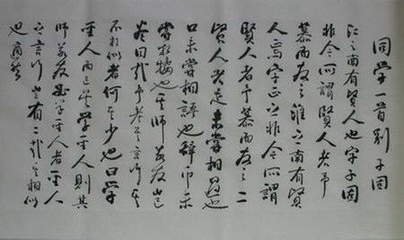 同學一首别子固
江之南有賢人焉字子固
非今所謂賢人者予
慕而友之淮之南有賢
人焉字正之非今所謂
賢人者予慕而友之二
賢人者足未嘗相過也
口未嘗相語也辭幣未
嘗相接也其師若友豈
盡同哉予考其言行其
不相似者何其少也曰學
聖人而已矣學聖人則其
師若友必學聖人者聖人
之言行豈有二哉其相似
也適然